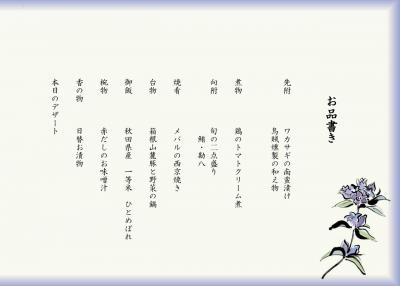 お品書き
先附 ワカサギの南蛮漬け
烏賊燻製の和え物
煮物 鶏のトマトクリーム煮
向附 旬の二点盛り
鮪・勘八
焼肴 メバルの西京焼き
台物 箱根山麓豚と野菜の鍋
御飯 秋田県産 一等米 ひとめぼれ
椀物 赤だしのお味噌汁
香の物 日替お漬物
本日のデザート